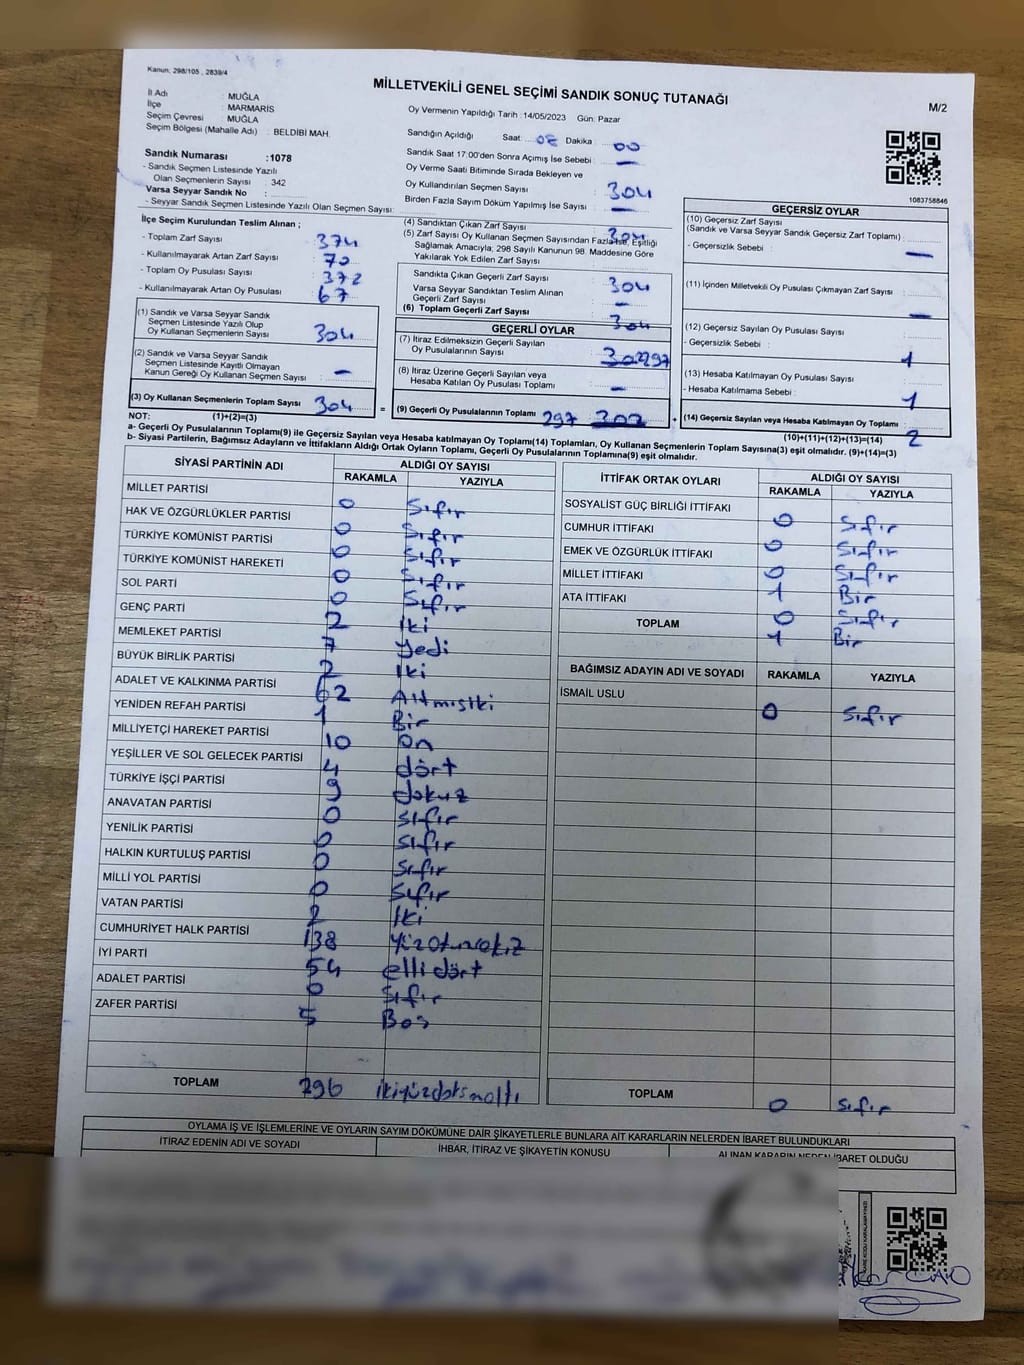 Kanun; 298/105 , 2839/4
MİLLETVEKİLİ GENEL SEÇİMİ SANDIK SONUÇ TUTANAĞI
M/2
İl Adı : MUĞLA
İlçe : MARMARİS
Seçim Çevresi : MUĞLA
Seçim Bölgesi (Mahalle Adı) : BELDİBİ MAH.
Oy Vermenin Yapıldığı Tarih :14/05/2023 Gün: Pazar
Sandığın Açıldığı Saat: 08 Dakika : 00
Sandık Saat 17:00'den Sonra Açımış İse Sebebi : —
Oy Verme Saati Bitiminde Sırada Bekleyen ve
Oy Kullandırılan Seçmen Sayısı : 304
Birden Fazla Sayım Döküm Yapılmış İse Sayısı : —
1083758846
Sandık Numarası :1078
- Sandık Seçmen Listesinde Yazılı
Olan Seçmenlerin Sayısı : 342
Varsa Seyyar Sandık No :
- Seyyar Sandık Seçmen Listesinde Yazılı Olan Seçmen Sayısı:
İlçe Seçim Kurulundan Teslim Alınan ;
- Toplam Zarf Sayısı : 374
- Kullanılmayarak Artan Zarf Sayısı : 70
- Toplam Oy Pusulası Sayısı : 372
- Kullanılmayarak Artan Oy Pusulası : 67
(1) Sandık ve Varsa Seyyar Sandık
Seçmen Listesinde Yazılı Olup
Oy Kullanan Seçmenlerin Sayısı : 304
(2) Sandık ve Varsa Seyyar Sandık
Seçmen Listesinde Kayıtlı Olmayan
Kanun Gereği Oy Kullanan Seçmen Sayısı : —
(3) Oy Kullanan Seçmenlerin Toplam Sayısı : 304
(4) Sandıktan Çıkan Zarf Sayısı : 304
(5) Zarf Sayısı Oy Kullanan Seçmen Sayısından Fazla ise, Eşitliği
Sağlamak Amacıyla; 298 Sayılı Kanunun 98. Maddesine Göre
Yakılarak Yok Edilen Zarf Sayısı :
Sandıkta Çıkan Geçerli Zarf Sayısı : 304
Varsa Seyyar Sandıktan Teslim Alınan
Geçerli Zarf Sayısı : —
(6) Toplam Geçerli Zarf Sayısı : 304
GEÇERLİ OYLAR
(7) İtiraz Edilmeksizin Geçerli Sayılan
Oy Pusulalarının Sayısı : 302 297
(8) İtiraz Üzerine Geçerli Sayılan veya
Hesaba Katılan Oy Pusulası Toplamı : —
= (9) Geçerli Oy Pusulalarının Toplamı : 297 302 +
GEÇERSİZ OYLAR
(10) Geçersiz Zarf Sayısı
(Sandık ve Varsa Seyyar Sandık Geçersiz Zarf Toplamı) :
- Geçersizlik Sebebi : —
(11) İçinden Milletvekili Oy Pusulası Çıkmayan Zarf Sayısı : —
(12) Geçersiz Sayılan Oy Pusulası Sayısı :
- Geçersizlik Sebebi : 1
(13) Hesaba Katılmayan Oy Pusulası Sayısı :
- Hesaba Katılmama Sebebi : 1
(14) Geçersiz Sayılan veya Hesaba Katılmayan Oy Toplamı : 2
NOT: (1)+(2)=(3)
(10)+(11)+(12)+(13)=(14)
a- Geçerli Oy Pusulalarının Toplamı(9) ile Geçersiz Sayılan veya Hesaba katılmayan Oy Toplamı(14) Toplamları, Oy Kullanan Seçmenlerin Toplam Sayısına(3) eşit olmalıdır. (9)+(14)=(3)
b- Siyasi Partilerin, Bağımsız Adayların ve İttifakların Aldığı Ortak Oyların Toplamı, Geçerli Oy Pusulalarının Toplamına(9) eşit olmalıdır.
SİYASİ PARTİNİN ADI ALDIĞI OY SAYISI
RAKAMLA YAZIYLA
MİLLET PARTİSİ 0 Sıfır
HAK VE ÖZGÜRLÜKLER PARTİSİ 0 Sıfır
TÜRKİYE KOMÜNİST PARTİSİ 0 Sıfır
TÜRKİYE KOMÜNİST HAREKETİ 0 Sıfır
SOL PARTİ 0 Sıfır
GENÇ PARTİ 2 İki
MEMLEKET PARTİSİ 7 Yedi
BÜYÜK BİRLİK PARTİSİ 2 İki
ADALET VE KALKINMA PARTİSİ 62 Altmışiki
YENİDEN REFAH PARTİSİ 1 Bir
MİLLİYETÇİ HAREKET PARTİSİ 10 On
YEŞİLLER VE SOL GELECEK PARTİSİ 4 dört
TÜRKİYE İŞÇİ PARTİSİ 9 dokuz
ANAVATAN PARTİSİ 0 Sıfır
YENİLİK PARTİSİ 0 Sıfır
HALKIN KURTULUŞ PARTİSİ 0 Sıfır
MİLLİ YOL PARTİSİ 0 Sıfır
VATAN PARTİSİ 2 İki
CUMHURİYET HALK PARTİSİ 138 Yüzotuzsekiz
İYİ PARTİ 54 elli dört
ADALET PARTİSİ 0 Sıfır
ZAFER PARTİSİ 5 Beş
TOPLAM 296 ikiyüzdoksanaltı
İTTİFAK ORTAK OYLARI ALDIĞI OY SAYISI
RAKAMLA YAZIYLA
SOSYALİST GÜÇ BİRLİĞİ İTTİFAKI 0 Sıfır
CUMHUR İTTİFAKI 0 Sıfır
EMEK VE ÖZGÜRLÜK İTTİFAKI 0 Sıfır
MİLLET İTTİFAKI 1 Bir
ATA İTTİFAKI 0 Sıfır
TOPLAM 1 Bir
BAĞIMSIZ ADAYIN ADI VE SOYADI RAKAMLA YAZIYLA
İSMAİL USLU 0 Sıfır
TOPLAM 0 Sıfır
OYLAMA İŞ VE İŞLEMLERİNE VE OYLARIN SAYIM DÖKÜMÜNE DAİR ŞİKAYETLERLE BUNLARA AİT KARARLARIN NELERDEN İBARET BULUNDUKLARI
İTİRAZ EDENİN ADI VE SOYADI İHBAR, İTİRAZ VE ŞİKAYETİN KONUSU ALINAN KARARIN NEDEN İBARET OLDUĞU